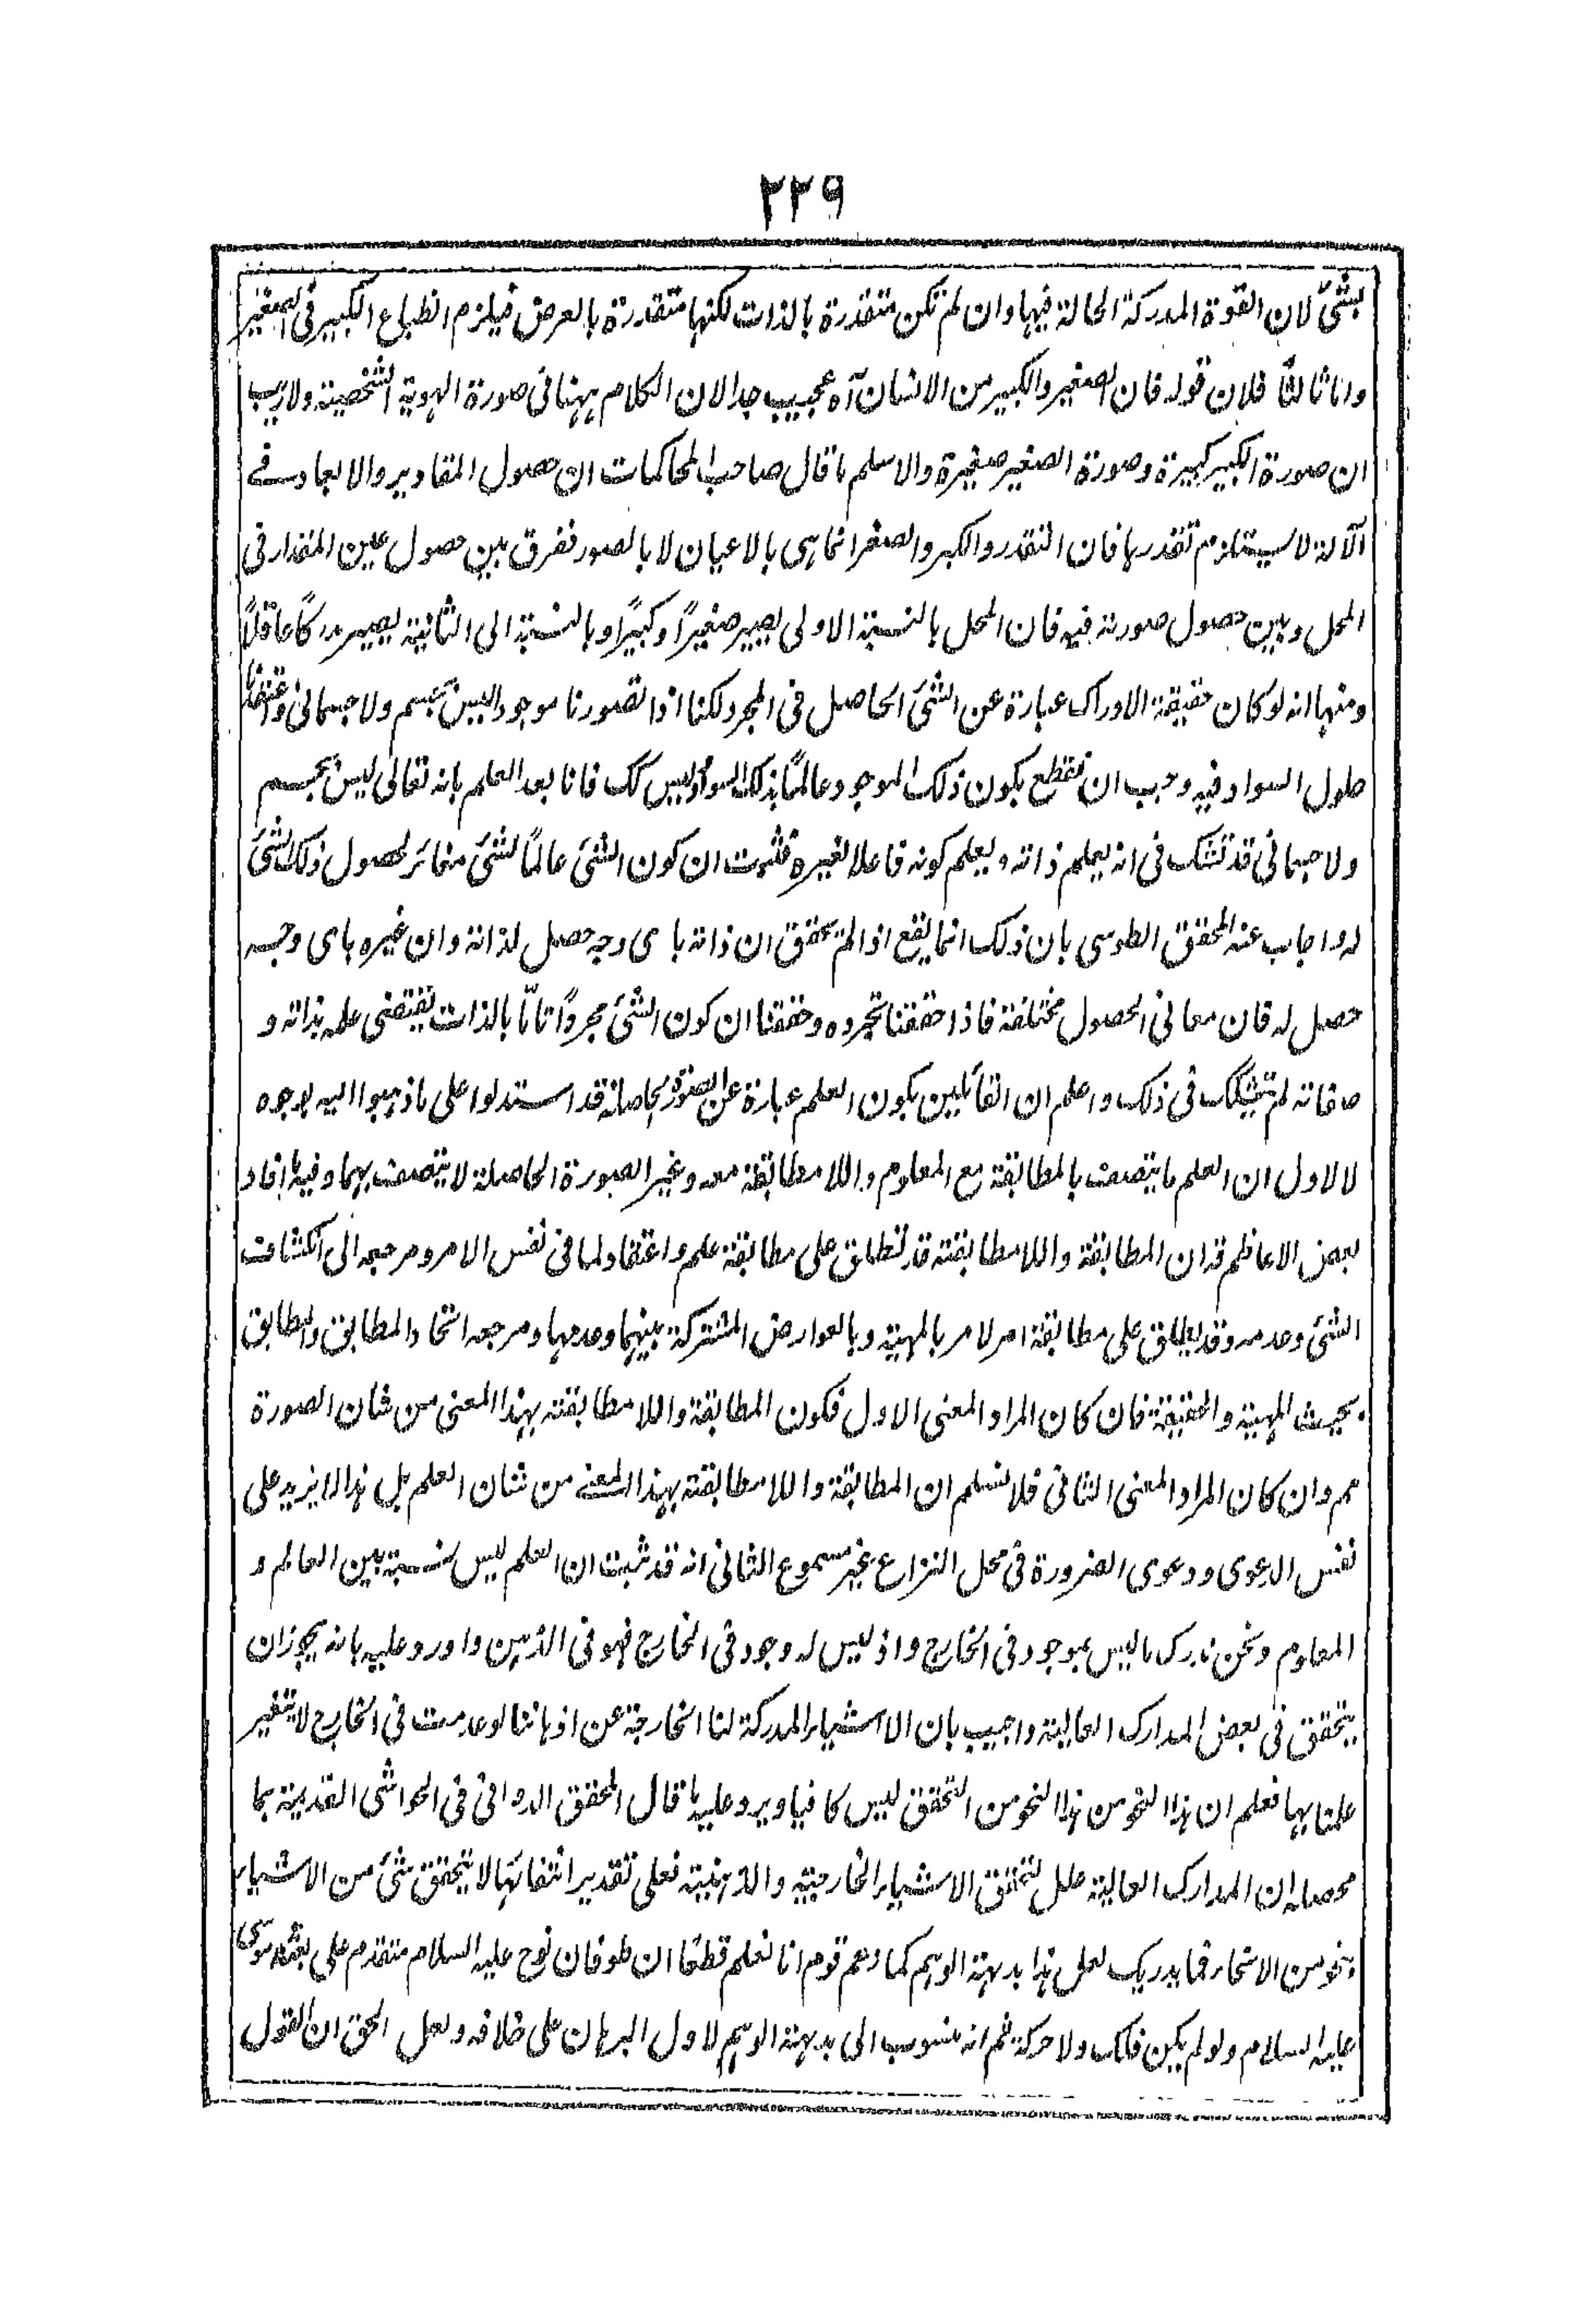 ٢٣٩
لبشئ لان القوة المدركة الحالة فيها وان لم تكن متقدرة بالذات لكنها متقدرة بالعرض فيلزم انطباع الكبير في الصغير
واما ثالثا فلان قوله فان الصغير والكبير من الانسان آه عجيب جدا لان الكلام ههنا فى صورة الهوية الشخصية ولاريب
ان صورة الكبير كبيرة وصورة الصغير صغيرة والاسلم ما قال صاحب المحاكمات ان حصول المقادير والابعاد فے
الآلة لا يستلزم تقدرها فان التقدر والكبر والصغر انما هى بالاعيان لا بالصور ففرق بين حصول عين المقدار فى
المحل وبين حصول صورته فيه فان المحل بالنسبة الاولى يصير صغيرًا وكبيرًا وبالنسبة الى الثانية يصير مدركًا عاقلًا
ومنها انه لو كان حقيقة الادراك عبارة عن الشئ الحاصل فى المجرد لكنا اذا تصورنا موجودا ليس بجسم ولا جسمانى واعتقدنا
حلول السواد فيه وجب ان نقطع بكون ذلك الموجود عالمًا بذلك السواد وليس كك فانا بعد العلم بانه تعالى ليس بجسم
ولا جسمانى قد نشك فى انه يعلم ذاته ويعلم كونه فاعلا لغيره فثبت ان كون الشئ عالمًا لشئ مغائر لحصول ذلك الشئ
له واجاب عنه المحقق الطوسى بان ذلك انما يقع اذا لم يتحقق ان ذاته باى وجه حصل لذاته وان غيره باى وجه
حصل له فان معانى الحصول مختلفة فاذا حققنا تجرده وحققنا ان كون الشئ مجردًا تامًا بالذات يقتضى علمه بذاته و
صفاته لم نتشكك فى ذلك واعلم ان القائلين بكون العلم عبارة عن الصورة الحاصلة قد استدلوا على ما ذهبوا اليه بوجوه
لا لاول ان العلم ما يتصف بالمطابقة مع المعلوم واللا مطابقة معه وغير الصورة الحاصلة لا يتصف بهما وفيه ما افاد
بعض الاعاظم قد ان المطابقة واللا مطابقته قد تطلق على مطابقة علم واعتقاد لما فى نفس الامر ومرجعه الى انكشاف
الشئ وعدمه وقد يطلق على مطابقة امر لامر بالمهية وبالعوارض المشتركة بينهما وعدمها ومرجعه اتحاد المطابق والمطابق
بحيث المهية والحقيقة فان كان المراد المعنى الاول فكون المطابقة واللا مطابقته بهذا المعنى من شان الصورة
مم وان كان المراد المعنى الثانى فلا نسلم ان المطابقة واللا مطابقته بهذا المعنے من شان العلم بل هذا لا يزيد على
نفس الدعوى ودعوى الضرورة فى محل النزاع غير مسموع الثانى انه قد ثبت ان العلم ليس نسبة بين العالم و
المعلوم ونحن ندرك ما ليس بموجود فى الخارج واذ ليس له وجود فى الخارج فهو فى الذهن واورد عليه بانه يجوز ان
يتحقق فى بعض المدارك العالية واجيب بان الاشياء المدركة لنا الخارجة عن اذهاننا لو عدمت فى الخارج لا يتغير
علمنا بها فعلم ان هذا النحو من هذا النحو من التحقق ليس كافيا ويرد عليه ما قال المحقق الدوانى فى الحواشى القديمة بما
محصله ان المدارك العالية علل لتحقق الاشياء الخارجية والذهنية فعلى تقدير انتفائها لا يتحقق شئ من الاشياء
بنحو من الانحاء فما يدريك لعل هذا بديهة الوهم كما زعم قوم انا نعلم قطعًا ان طوفان نوح عليه السلام متقدم على بعثة موسى
عليه السلام ولو لم يكن فلك ولا حركة ثم انه منسوب الى بديهة الوهم لاول البرهان على خلافه ولعل الحق ان القول